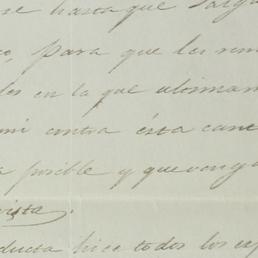 se hasta que salg
co, para que les rem
des en la que ultimam
mi contra ésta cane
a posible y que venga
vista,
ducta hice todos los esf